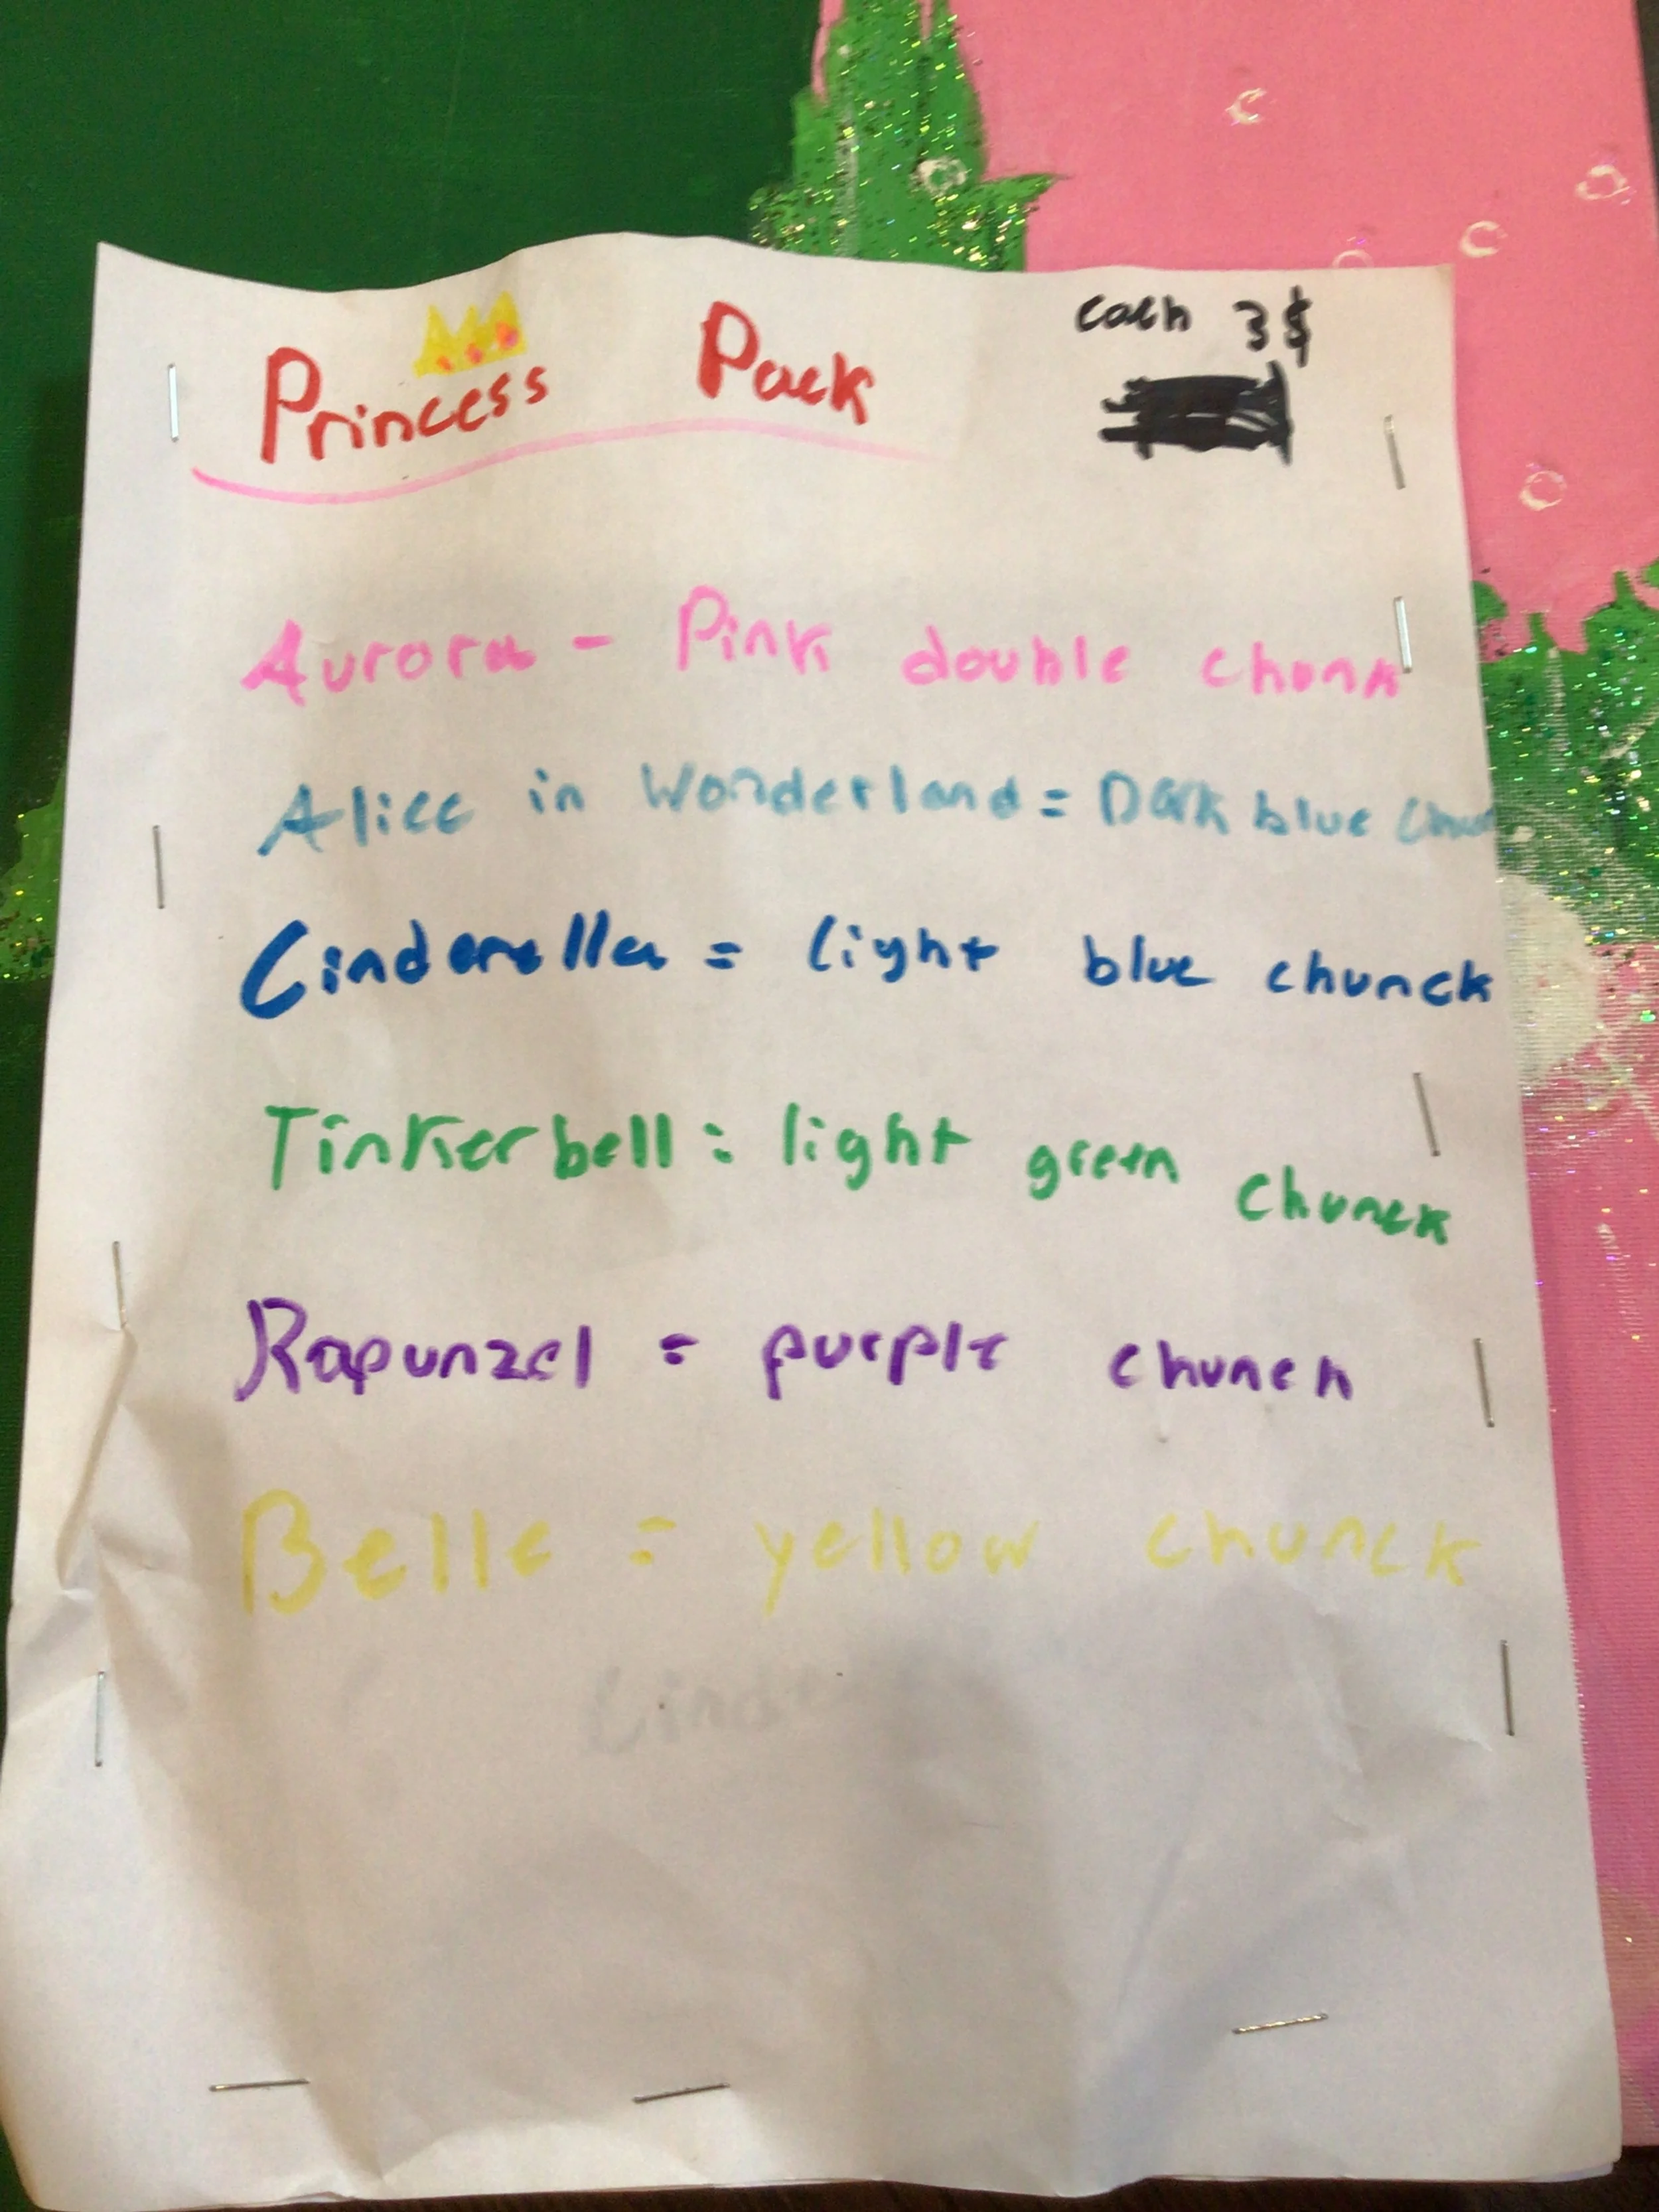 Princess Pack
cach 3$
Aurora - Pink double chonk
Alice in Wonderland = Dark blue
Cinderella = light blue chunck
Tinkerbell = light green chunck
Rapunzel = purple chunch
Belle = yellow chunck